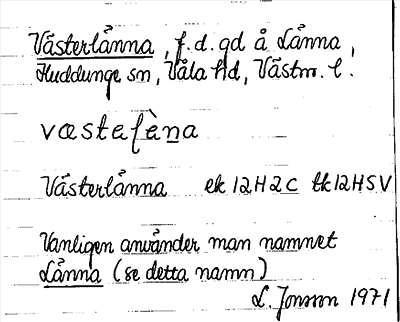 Västerlånna, f.d. gd å Lånna,
Huddunge sn, Våla hd, Västm. l.
væstelὲna
Västerlånna ek 12H2C tk12HSV
Vanligen använder man namnet
Lånna (se detta namn)
L. Jonsson 1971